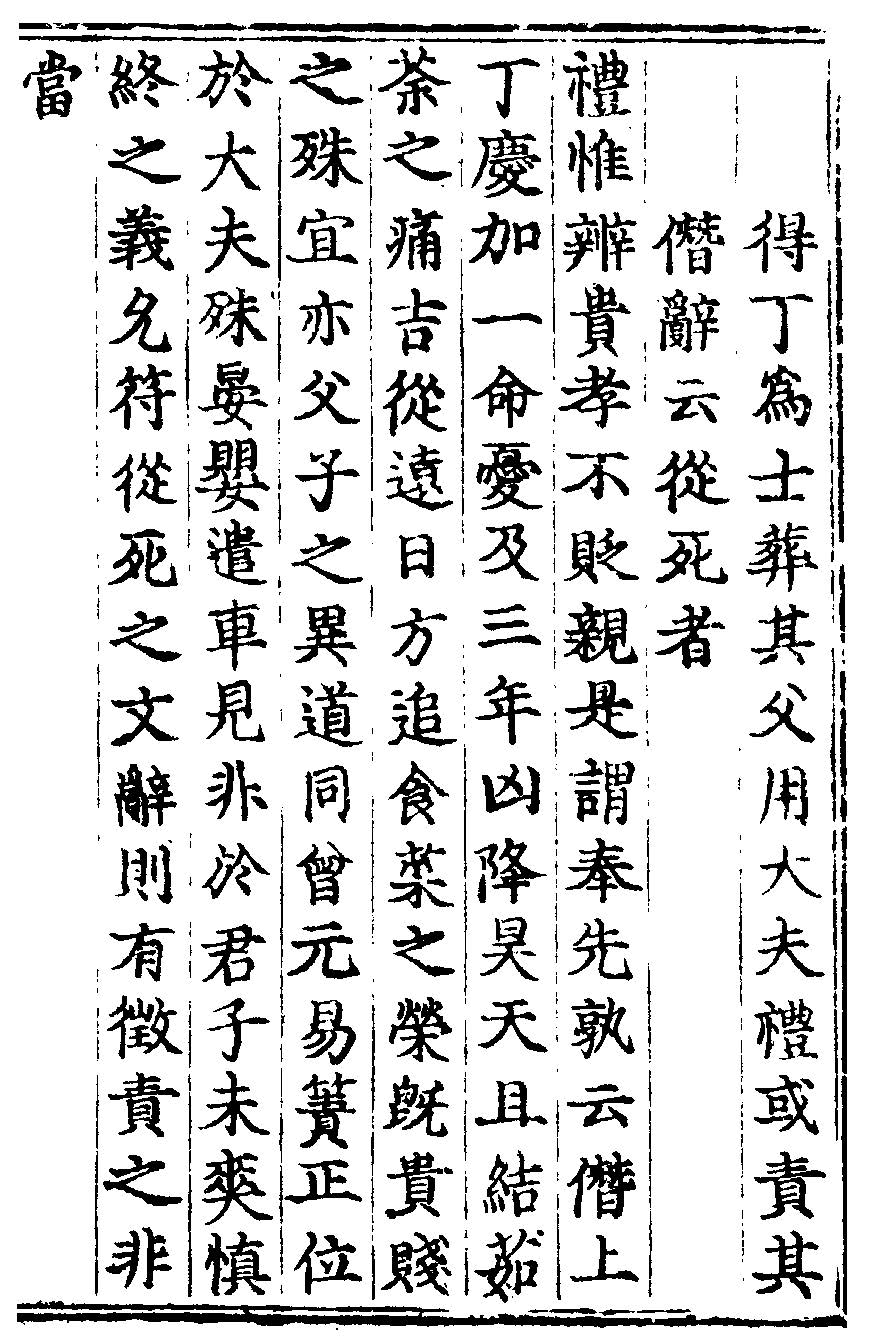 得丁爲士葬其父用大夫禮或責其
僭辭云從死者
禮惟辨貴孝不貶親是謂奉先孰云僭上
丁慶加一命憂及三年凶降昊天且結茹
荼之痛吉從遠日方追食菜之榮旣貴賤
之殊宜亦父子之異道同曾元易簀正位
於大夫殊晏嬰遣車見非於君子未爽愼
終之義允符從死之文辭則有徵責之非
當